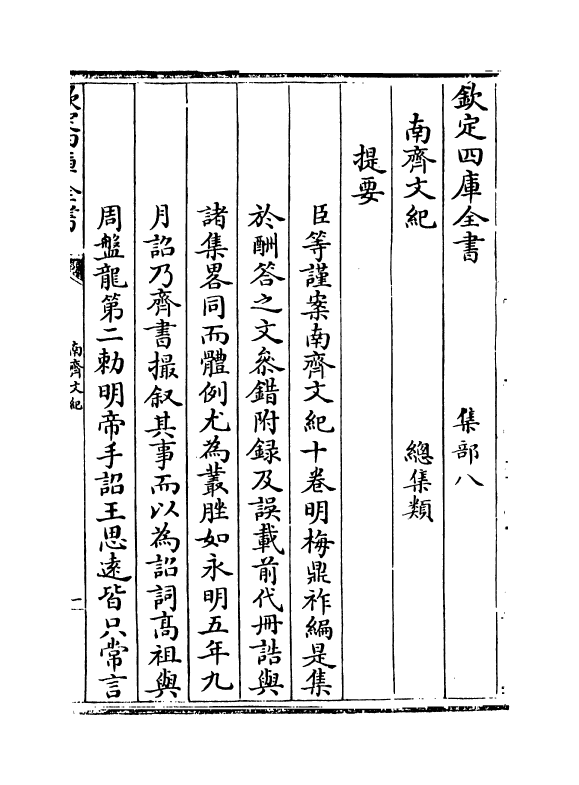 欽定四庫全書　　　集部八
南齊文紀　　　　　總集類
提要
臣等謹案南齊文紀十卷明梅鼎祚編是集
於酬答之文叅錯附録及誤載前代冊誥與
諸集畧同而體例尤為叢脞如永明五年九
月詔乃齊書撮叙其事而以為詔詞髙祖與
周盤龍第二勅明帝手詔王思逺皆只常言
欽定四庫全書
南齊文紀